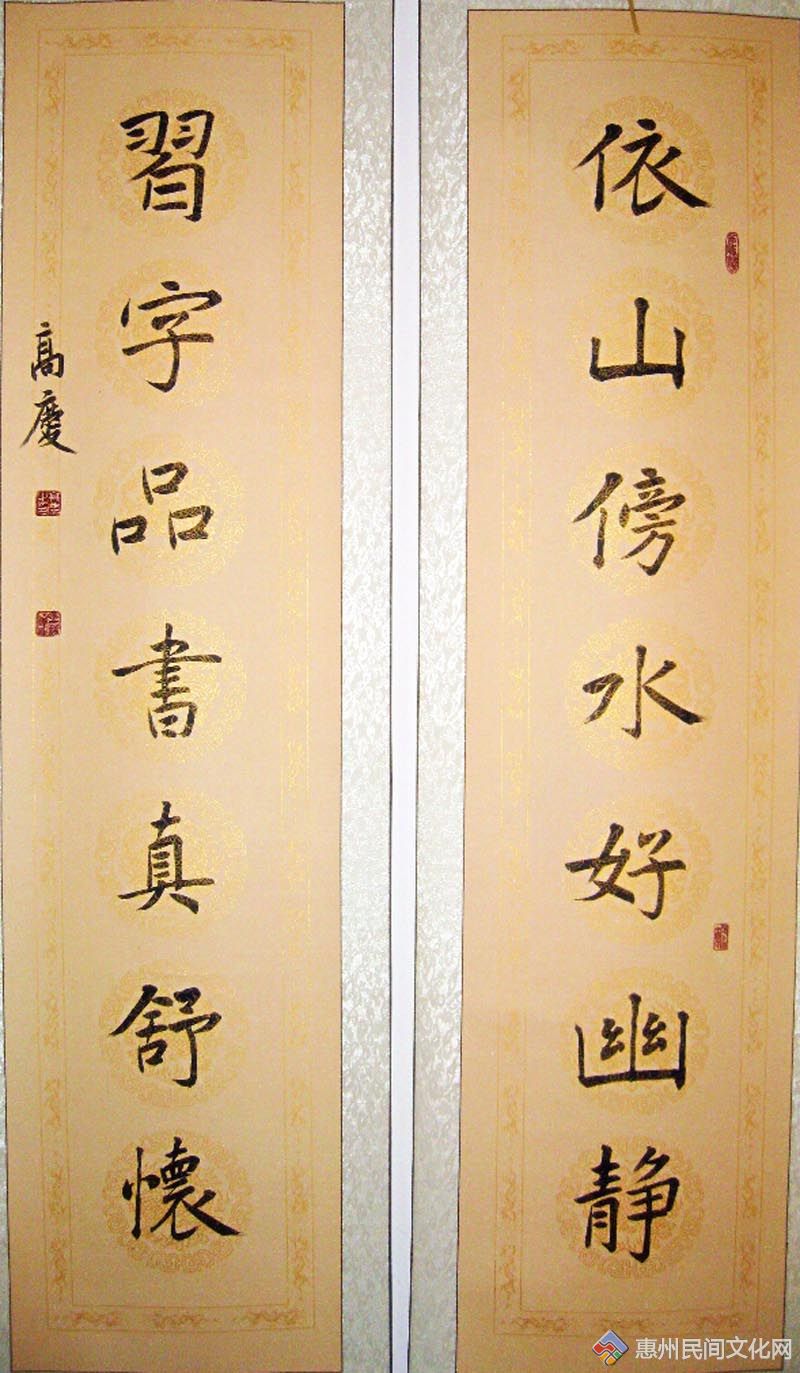 依山傍水好幽静
習字品書真舒懷
高慶
惠州民间文化网